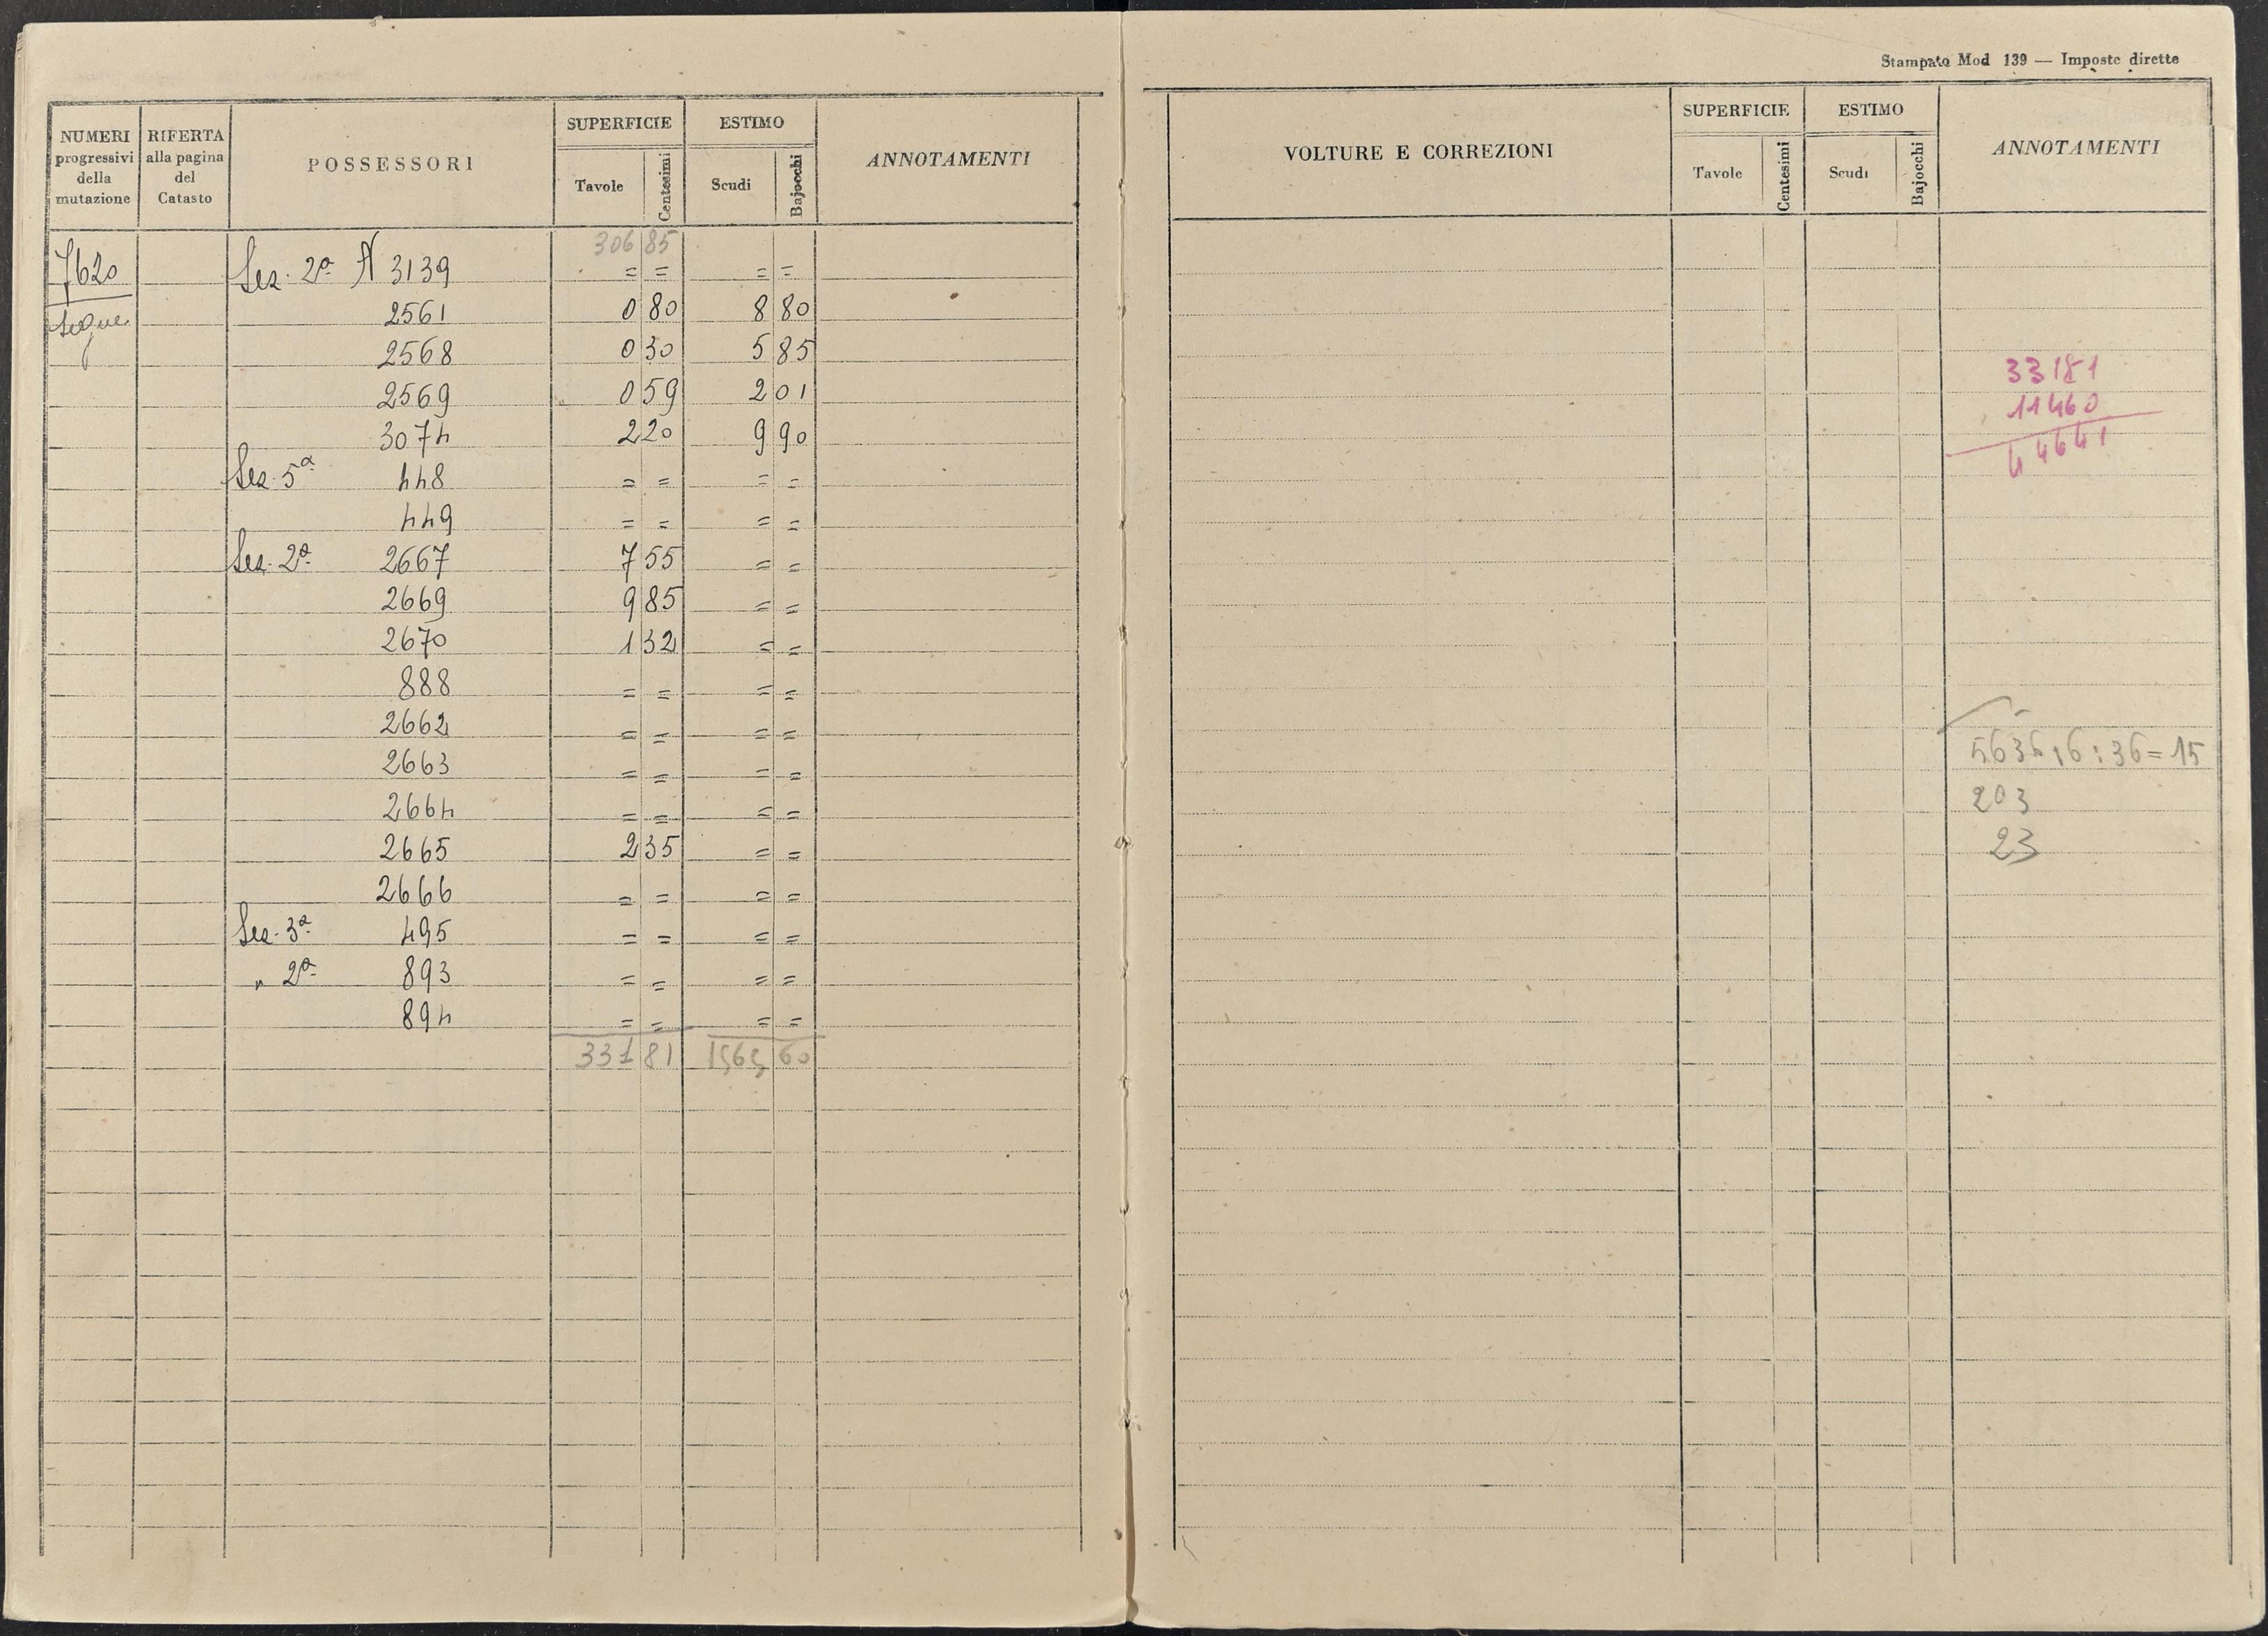 Stampato Mod 139 — Imposte dirette
NUMERI progressivi della mutazione
RIFERTA alla pagina del Catasto
POSSESSORI
SUPERFICIE
Tavole Centesimi
ESTIMO
Scudi Bajocchi
ANNOTAMENTI
306 85
7620 Sez. 2ª N 3139 = = = =
Segue 2561 0 80 8 80
2568 0 30 5 85
2569 0 59 2 01
3074 2 20 9 90
Sez. 5ª 448 = = = =
449 = = = =
Sez. 2ª 2667 7 55 = =
2669 9 85 = =
2670 1 32 = =
888 = = = =
2662 = = = =
2663 = = = =
2664 = = = =
2665 2 35 = =
2666 = = = =
Sez. 3ª 495 = = = =
" 2ª 893 = = = =
894 = = = =
331 81 1565 60
VOLTURE E CORREZIONI
SUPERFICIE
Tavole Centesimi
ESTIMO
Scudi Bajocchi
ANNOTAMENTI
33181
11460
44641
: 36 = 15
203
23